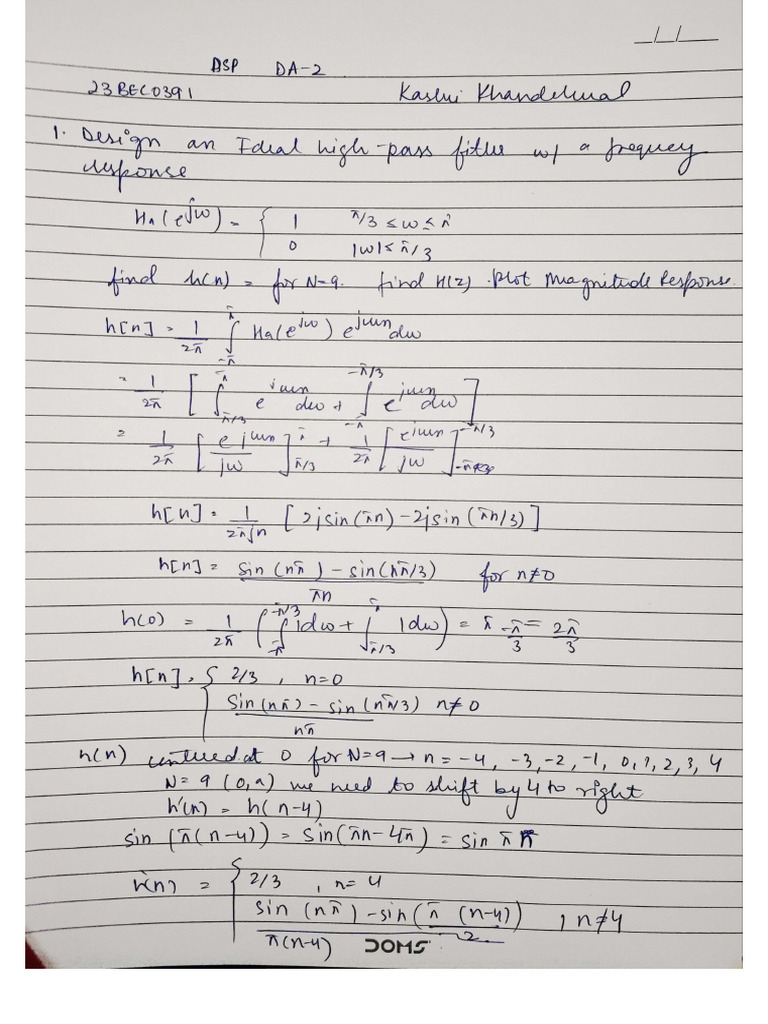 _/_/_
DSP DA-2
23BEC0391 Kashvi Khandelwal
1. Design an Ideal high-pass filter w/ a frequency
response
Hₐ(e^jω) = { 1 π/3 ≤ ω ≤ π
0 |ω| ≤ π/3
find h(n) = for N=9. find H(z). Plot Magnitude Response.
h[n] = 1/2π ∫_{-π}^{π} Hₐ(e^jω) e^jωn dω
= 1/2π [ ∫_{π/3}^{π} e^jωn dω + ∫_{-π}^{-π/3} e^jωn dω ]
= 1/2π [ e^jωn / jω ]_{π/3}^{π} + 1/2π [ e^jωn / jω ]_{-π}^{-π/3}
h[n] = 1/2πjn [ 2jsin(πn) - 2jsin(πn/3) ]
h[n] = sin(nπ) - sin(nπ/3) / πn for n≠0
h(0) = 1/2π ( ∫_{-π}^{-π/3} 1dω + ∫_{π/3}^{π} 1dω ) = π - π/3 = 2π/3
h[n] = { 2/3 , n=0
sin(nπ) - sin(nπ/3) / nπ n≠0
h(n) centred at 0 for N=9 → n = -4, -3, -2, -1, 0, 1, 2, 3, 4
N=9 (0,a) we need to shift by 4 to right
h'(n) = h(n-4)
sin (π(n-4)) = sin(πn-4π) = sin πn
h'(n) = { 2/3 , n=4
sin(nπ) - sin(π/2 (n-4)) / π(n-4) , n≠4
DOMS